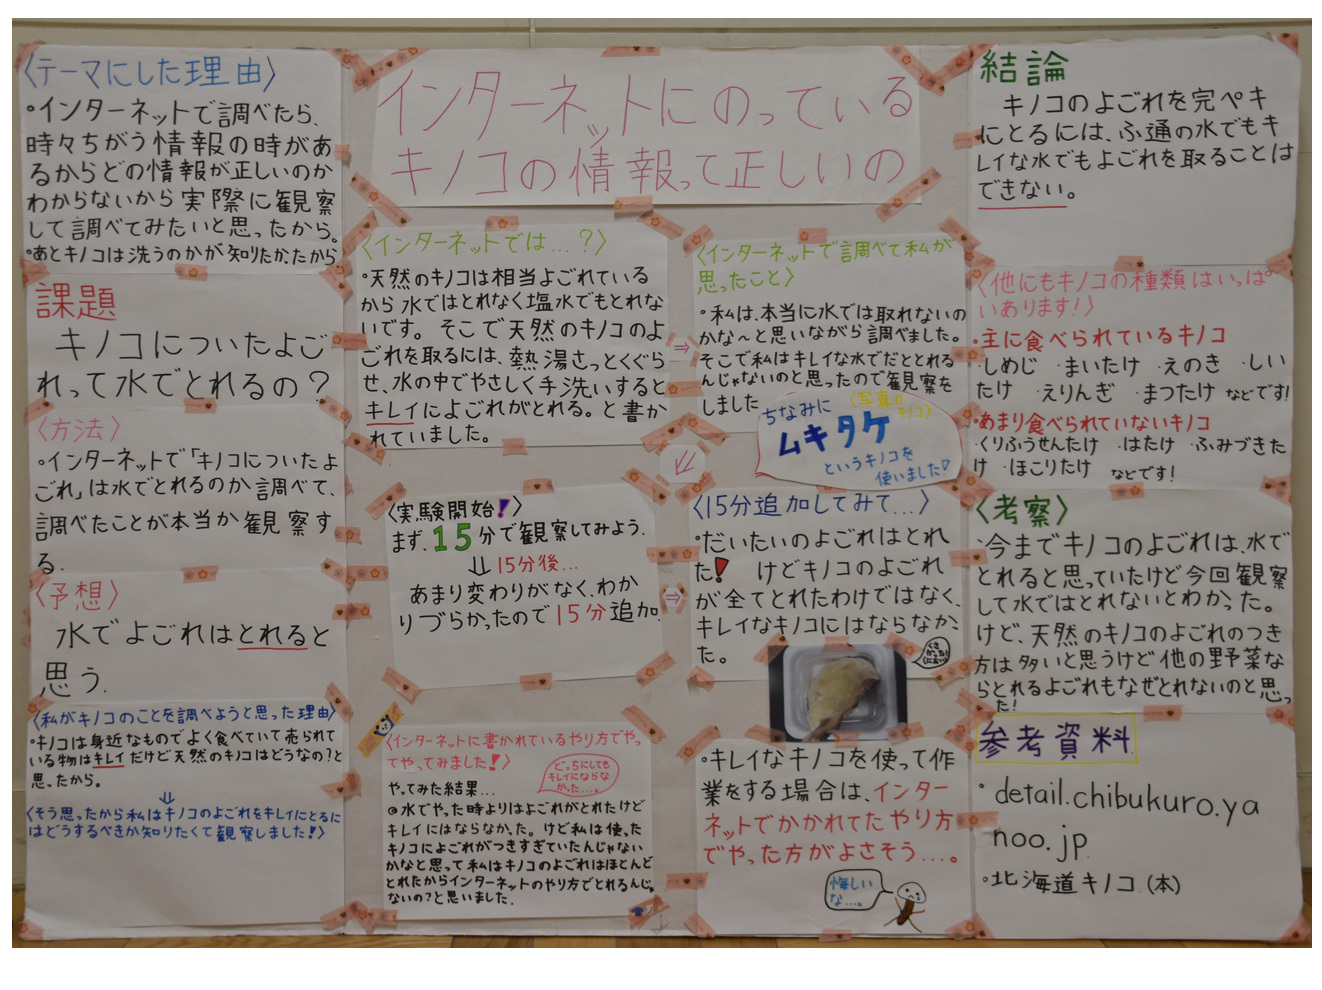 インターネットにのっている
キノコの情報って正しいの
〈テーマにした理由〉
・インターネットで調べたら、
時々ちがう情報の時があ
るからどの情報が正しいのか
わからないから実際に観察
して調べてみたいと思ったから。
・あとキノコは洗うのかが知りたかったから
課題
キノコについたよご
れって水でとれるの？
〈方法〉
・インターネットで「キノコについたよ
ごれ」は水でとれるのか調べて、
調べたことが本当か観察す
る.
〈予想〉
水でよごれはとれると
思う.
〈私がキノコのことを調べようと思った理由〉
・キノコは身近なものでよく食べていて売られて
いる物はキレイだけど天然のキノコはどうなの?と
思ったから。
⇓
〈そう思ったから私はキノコのよごれをキレイにとるに
はどうするべきか知りたくて観察しました!〉
〈インターネットでは…?〉
・天然のキノコは相当よごれている
から水ではとれなく塩水でもとれな
いです。そこで天然のキノコのよ
ごれを取るには、熱湯さっとくぐら
せ、水の中でやさしく手洗いすると
キレイによごれがとれる。と書か
れていました。
⇒
〈インターネットで調べて私が
思ったこと〉
・私は、本当に水では取れないの
かな〜と思いながら調べました。
そこで私はキレイな水でだととれる
んじゃないのと思ったので観察を
しました
ちなみに〈写真のキノコ〉
ムキタケ
というキノコを
使いました!
〈実験開始!〉
まず、15分で観察してみよう.
⇓15分後…
あまり変わりがなく、わか
りづらかったので15分追加.
⇒
〈15分追加してみて…〉
・だいたいのよごれはとれ
た! けどキノコのよごれ
が全てとれたわけではなく、
キレイなキノコにはならなかっ
た。
〈インターネットに書かれているやり方でやっ
てやってみました!〉
どっちにしても
キレイにならな
かった…。
やってみた結果…
◎水でやった時よりはよごれがとれたけど
キレイにはならなかった。けど私は使った
キノコによごれがつきすぎていたんじゃない
かなと思って私はキノコのよごれはほとんど
とれたからインターネットのやり方でとれるんじゃ
ないの?と思いました.
・キレイなキノコを使って作
業をする場合は、インター
ネットでかかれてたやり方
でやった方がよさそう…。
悔しい
な…。
結論
キノコのよごれを完ペキ
にとるには、ふ通の水でもキ
レイな水でもよごれを取ることは
できない。
〈他にもキノコの種類はいっぱ
いあります!〉
・主に食べられているキノコ
しめじ ・まいたけ ・えのき ・しい
たけ ・えりんぎ ・まつたけ などです!
・あまり食べられていないキノコ
・くりふうせんたけ ・はたけ ・ふみづきた
け ・ほこりたけ などです!
〈考察〉
・今までキノコのよごれは、水で
とれると思っていたけど今回観察
して水ではとれないとわかった。
けど、天然のキノコのよごれのつき
方は多いと思うけど他の野菜な
らとれるよごれもなぜとれないのと思っ
た!
参考資料
・detail.chibukuro.ya
hoo.jp
・北海道キノコ.(本)